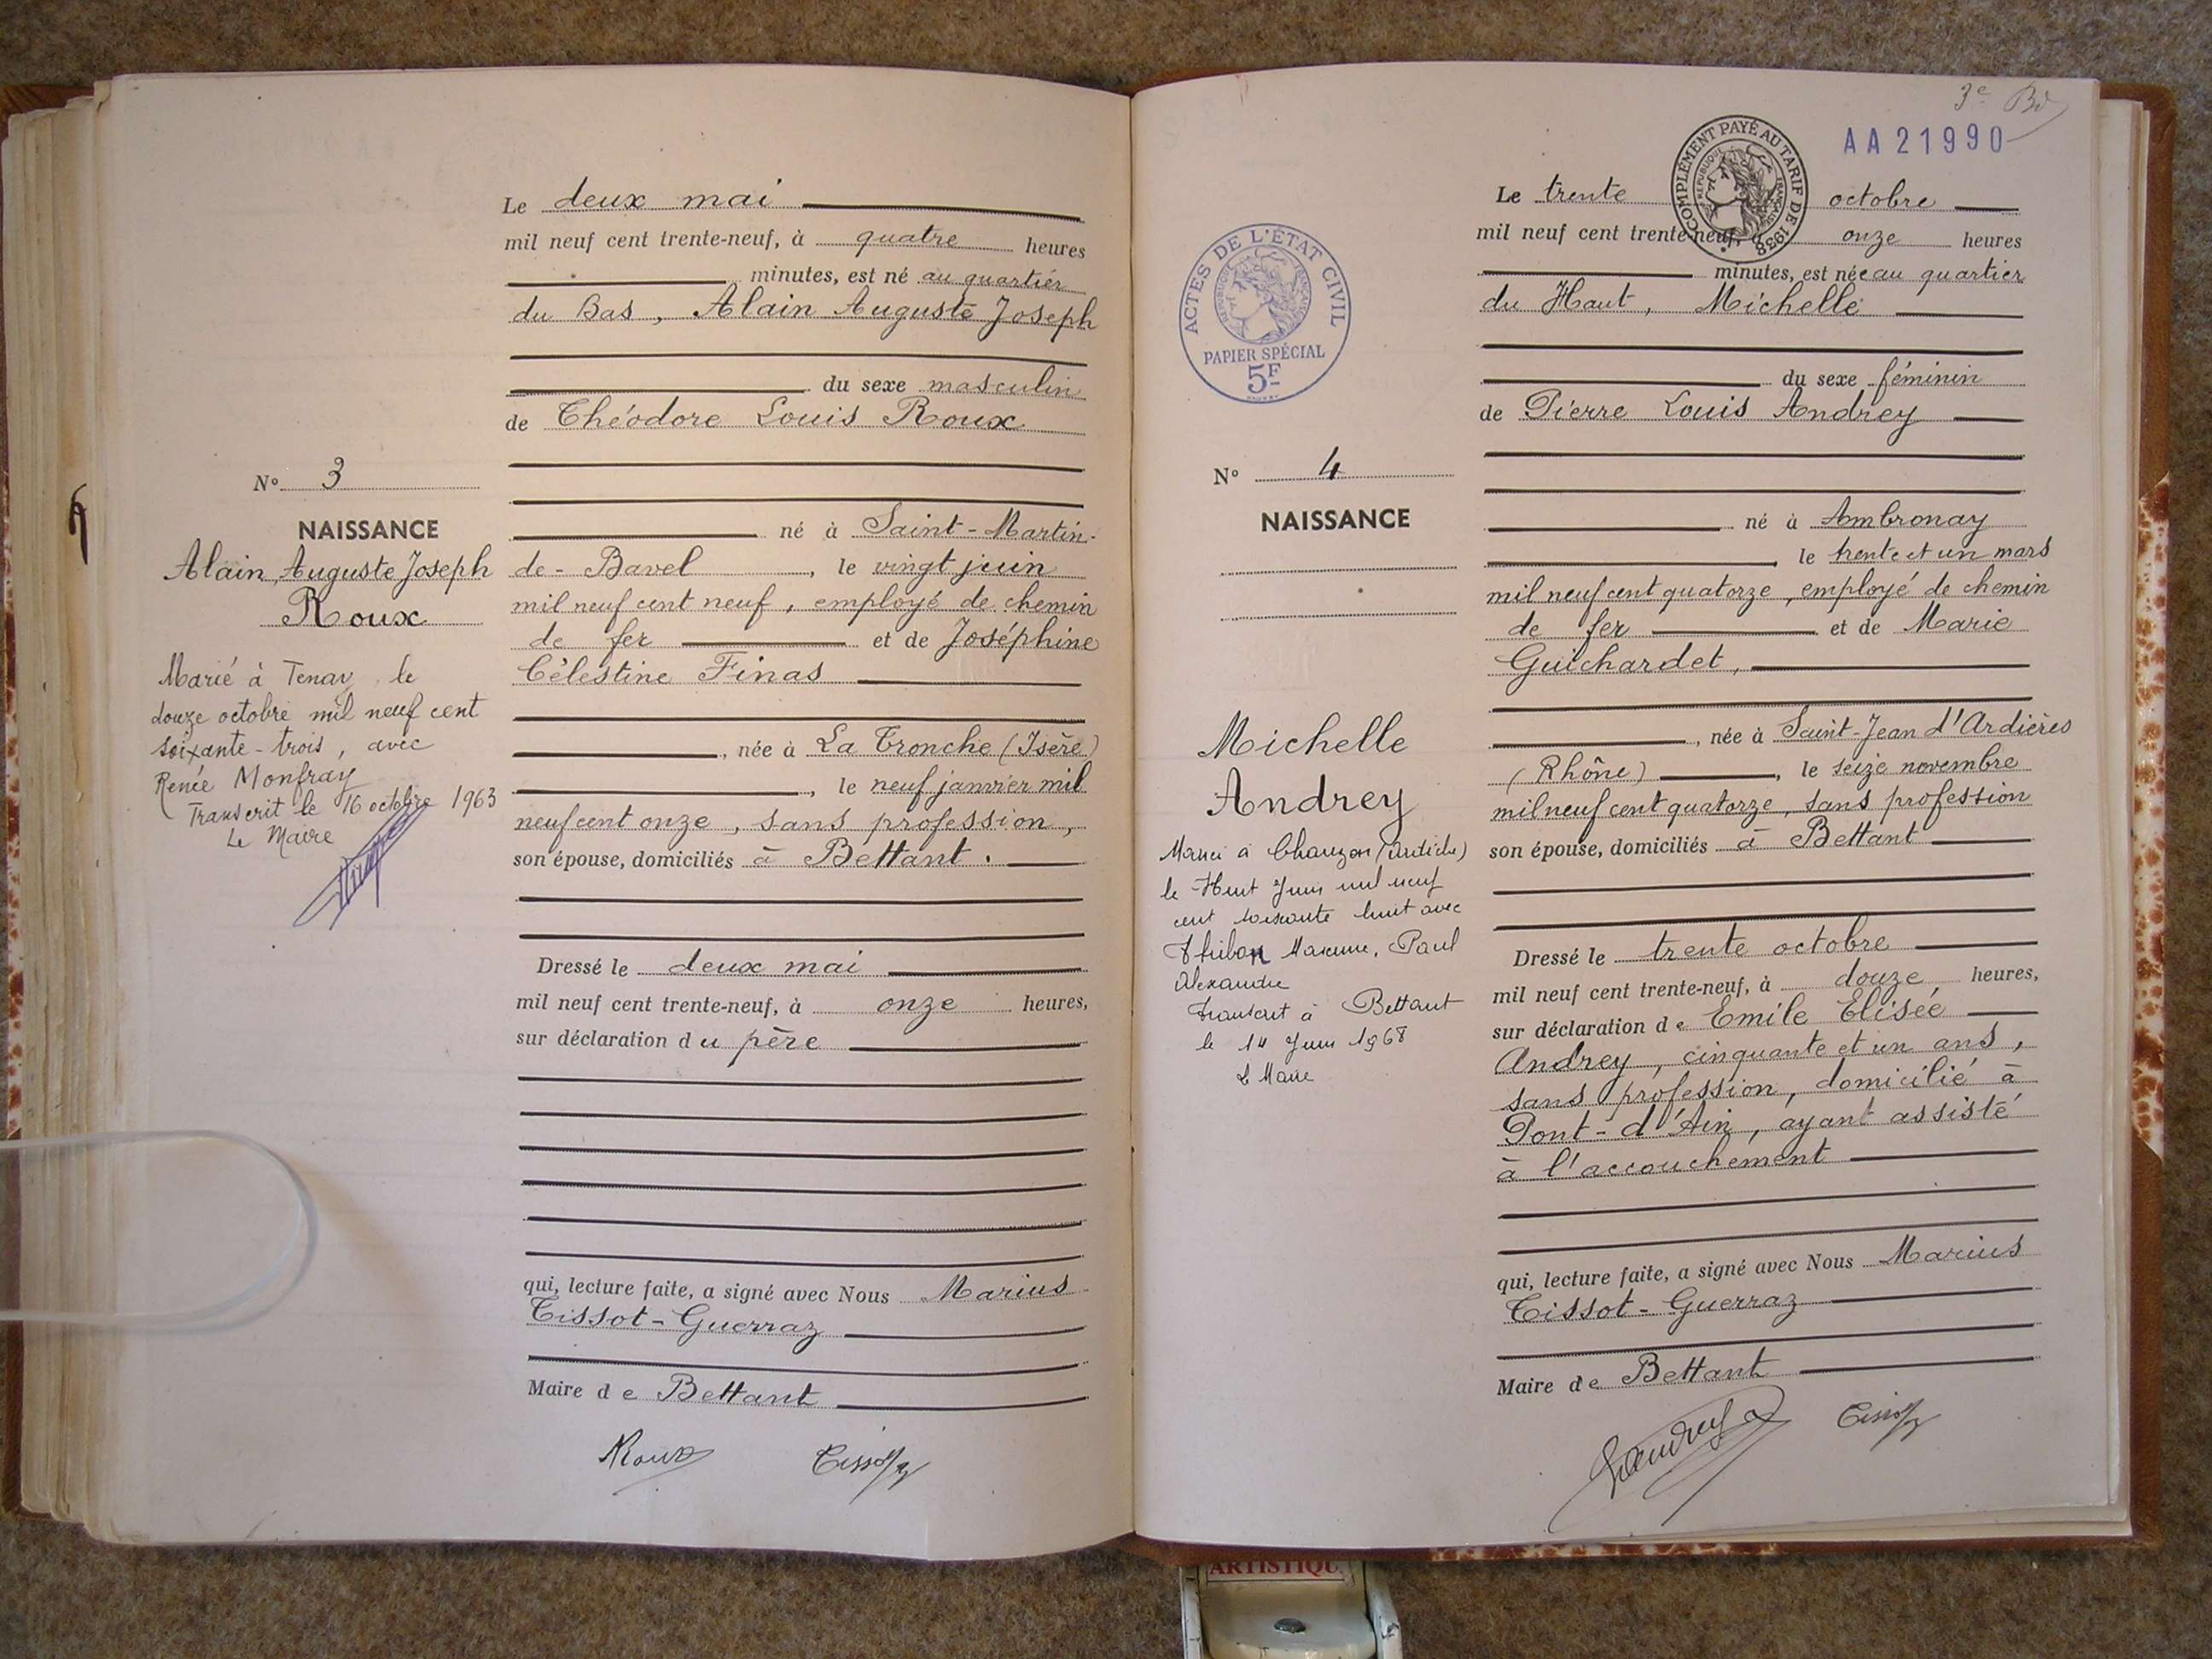 Le deux mai
mil neuf cent trente-neuf, à quatre heures
minutes, est né au quartier
du Bas, Alain Auguste Joseph
du sexe masculin
de Théodore Louis Roux
N° 3
NAISSANCE
Alain Auguste Joseph
Roux
né à Saint-Martin-
de-Bavel, le vingt juin
mil neuf cent neuf, employé de chemin
de fer et de Joséphine
Célestine Finas
, née à La Tronche (Isère)
, le neuf janvier mil
neuf cent onze, sans profession,
son épouse, domiciliés à Bettant.
Marié à Tenay le
douze octobre mil neuf cent
soixante-trois, avec
Renée Monfray
Transcrit le 16 octobre 1963
Le Maire
Dressé le deux mai
mil neuf cent trente-neuf, à onze heures,
sur déclaration du père
qui, lecture faite, a signé avec Nous Marius
Tissot-Guerraz
Maire de Bettant
Roux
3e
AA21990
COMPLÉMENT PAYÉ AU TARIF DE 1938
RÉPUBLIQUE FRANÇAISE
Le trente octobre
mil neuf cent trente-neuf, à onze heures
minutes, est née au quartier
du Haut, Michelle
du sexe féminin
de Pierre Louis Andrey
ACTES DE L'ÉTAT CIVIL
RÉPUBLIQUE FRANÇAISE
PAPIER SPÉCIAL
5F
N° 4
NAISSANCE
né à Ambronay
le trente et un mars
mil neuf cent quatorze, employé de chemin
de fer et de Marie
Guichardet,
, née à Saint-Jean d'Ardières
(Rhône), le seize novembre
mil neuf cent quatorze, sans profession
son épouse, domiciliés à Bettant
Michelle
Andrey
à Chauzon (Ardèche)
le Huit Juin mil neuf
cent soixante huit avec
Thibon Maxime, Paul
Alexandre
Transcrit à Bettant
le 14 Juin 1968
Le Maire
Dressé le trente octobre
mil neuf cent trente-neuf, à douze heures,
sur déclaration de Emile Elisée
Andrey, cinquante et un ans,
sans profession, domicilié à
Pont-d'Ain, ayant assisté
à l'accouchement
qui, lecture faite, a signé avec Nous Marius
Tissot-Guerraz
Maire de Bettant
ARTISTIQU